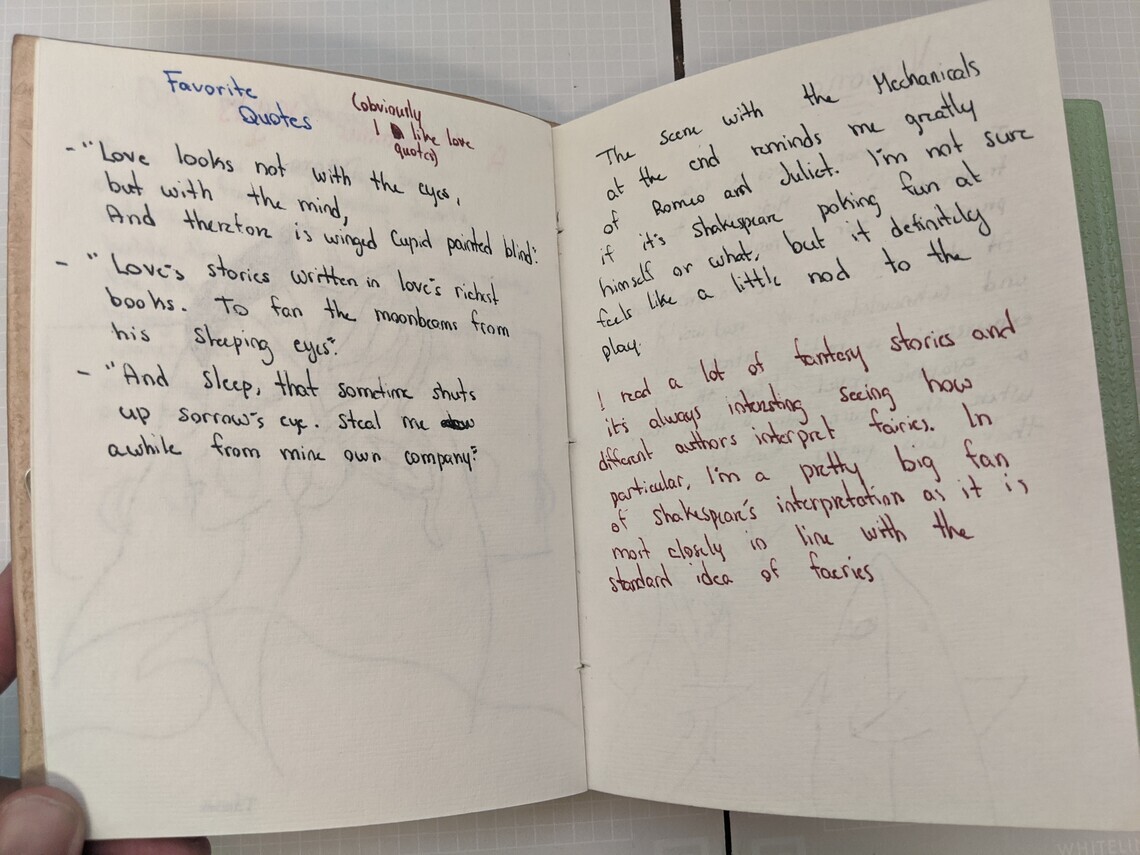 Favorite
Quotes
(obviously
I like love
quotes)
- "Love looks not with the eyes,
but with the mind,
And therefore is winged Cupid painted blind".
- "Love's stories written in love's richest
books. To fan the moonbeams from
his sleeping eyes".
- "And sleep, that sometime shuts
up sorrow's eye. Steal me
awhile from mine own company".
The scene with the Mechanicals
at the end reminds me greatly
of Romeo and Juliet. I'm not sure
if it's Shakespeare poking fun at
himself or what, but it definitely
feels like a little nod to the
play.
I read a lot of fantasy stories and
it's always interesting seeing how
different authors interpret fairies. In
particular, I'm a pretty big fan
of Shakespeare's interpretation as it is
most closely in line with the
standard idea of faeries
WHITELI